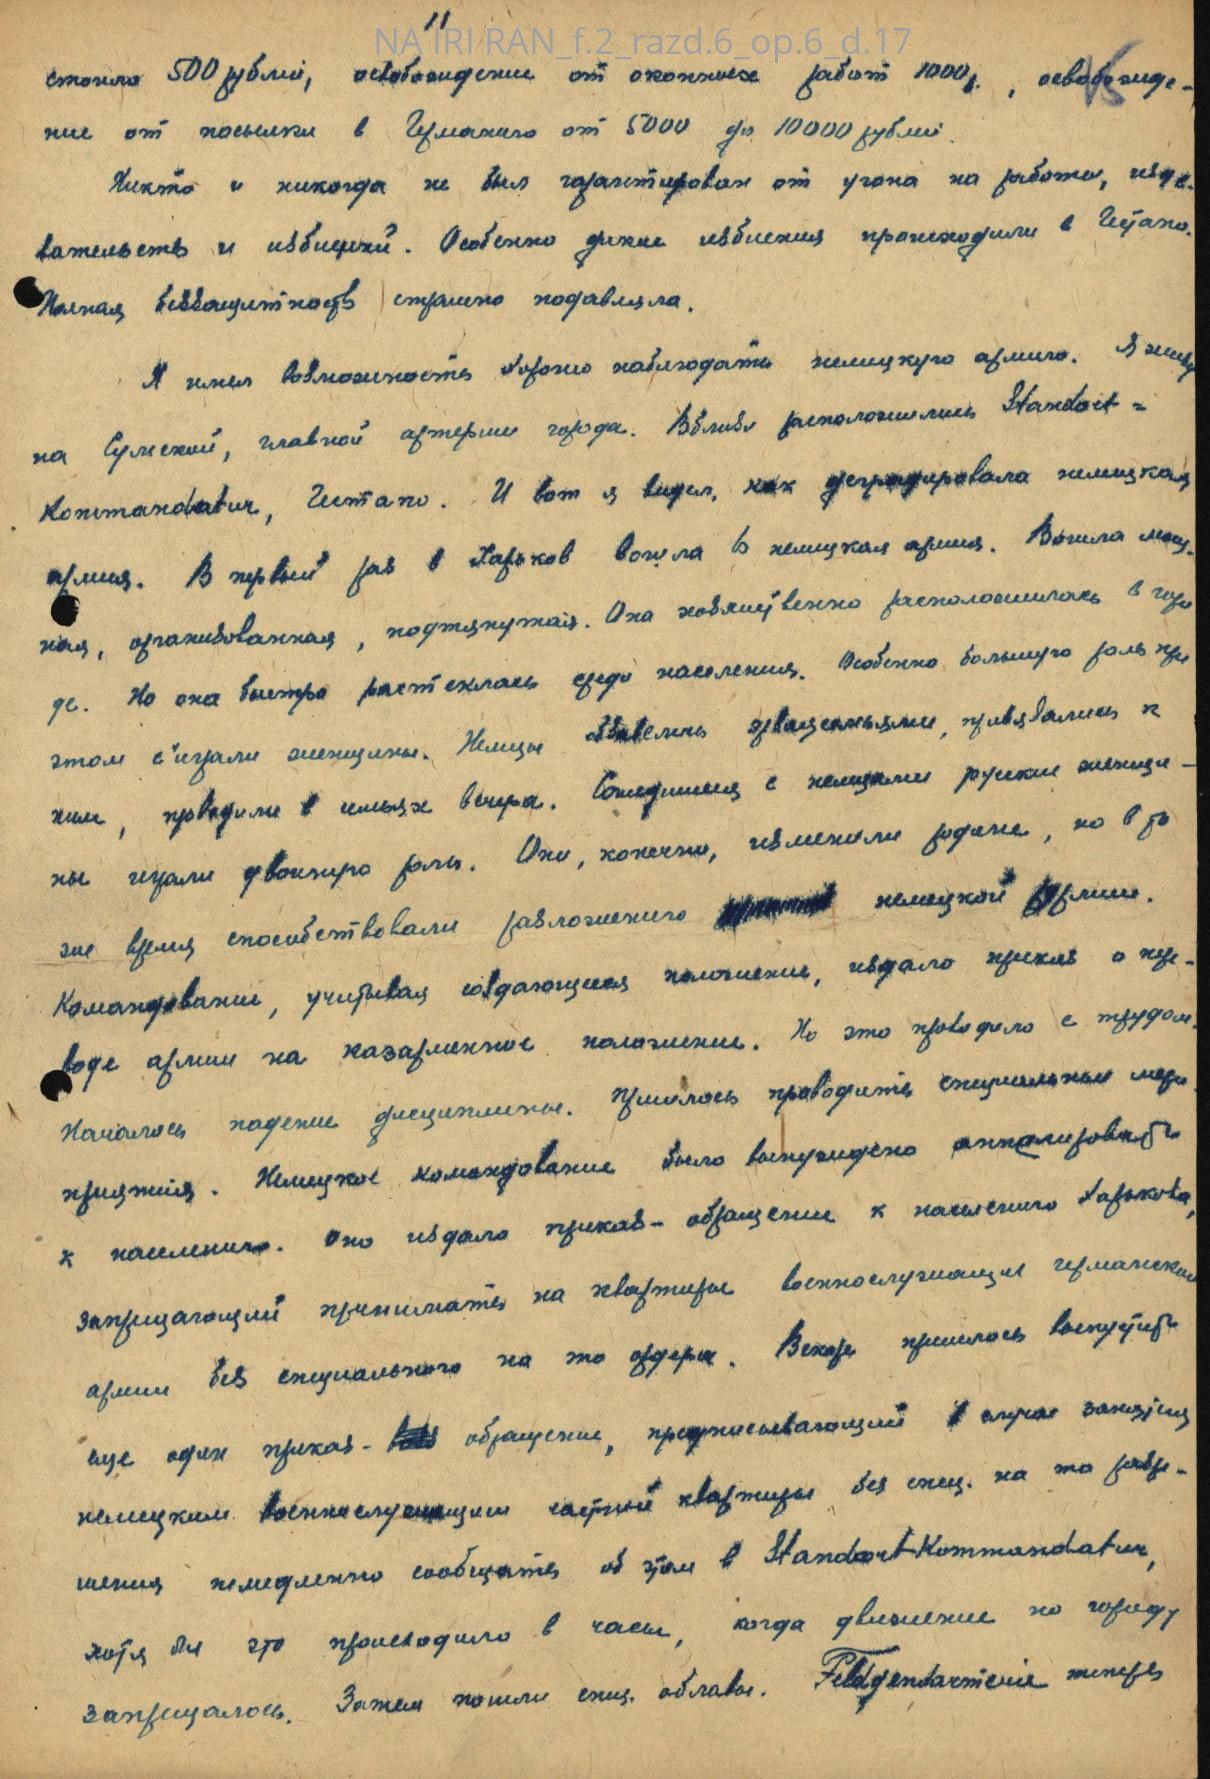 11
NA IRI RAN_f.2_razd.6_op.6_d.17
15
стоило 500 рублей, освобождение от окопных работ 1000 р., освобожде-
ние от посылки в Германию от 5000 до 10000 рублей.
Никто и никогда не был гарантирован от угона на работы, изде-
вательств и избиений. Особенно дикие избиения происходили в Гестапо.
Полная беззащитность страшно подавляла.
Я имел возможность хорошо наблюдать немецкую армию. Я живу
на Сумской, главной артерии города. Вблизи расположились Standort=
Kommandatur, Гестапо. И вот я видел, как деградировала немецкая
армия. В первый раз в Харьков вошла 6 немецкая армия. Вошла мощ-
ная, организованная, подтянутая. Она хозяйственно расположилась в горо
де. Но она быстро растеклась среди населения. Особенно большую роль при
этом сыграли женщины. Немцы обзавелись, привязались к
ним, проводили в семьях вечера. Сошедшиеся с немцами русские женщи-
ны играли двоякую роль. Они, конечно, изменили родине, но в то
же время способствовали разложению немецкой армии.
Командование, учитывая создающееся положение, издало приказ о пере-
воде армии на казарменное положение. Но это проводило с трудом.
Началось падение дисциплины. Пришлось проводить специальные меро-
приятия. Немецкое командование было вынуждено аппелировать
к населению. Оно издало приказ-обращение к населению Харькова,
запрещающий принимать на квартиры военнослужащих германской
армии без специального на то ордера. Вскоре пришлось выпустить
еще один приказ- обращение, предписывающий в случае занятия
немецким военнослужащим частной квартиры без спец. на то разре-
шения немедленно сообщать об этом в Standort-Kommandatur,
хотя бы это происходило в часы, когда движение по городу
запрещалось. Затем пошли спец. облавы. Feldgendarmerie теперь